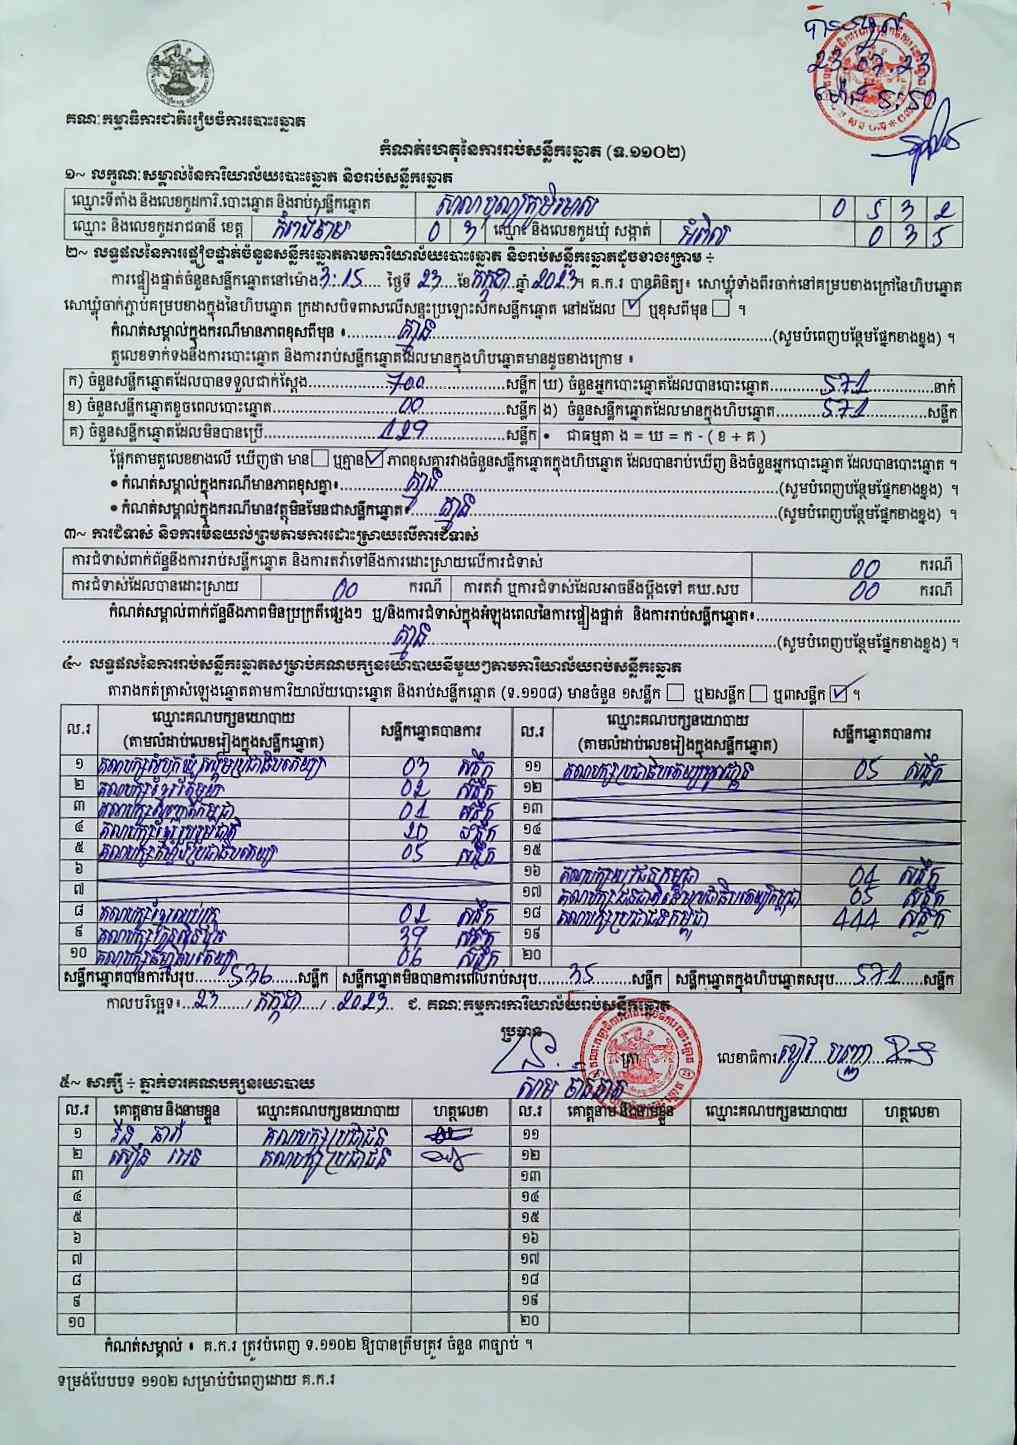 បានឃើញ
23.07.23
គណៈកម្មាធិការជាតិរៀបចំការបោះឆ្នោត
កំណត់ហេតុនៃការរាប់សន្លឹកឆ្នោត (ទ.១១០២)
១~ លក្ខណៈសម្គាល់នៃការិយាល័យបោះឆ្នោត និងរាប់សន្លឹកឆ្នោត
ឈ្មោះទីតាំង និងលេខកូដការិ.បោះឆ្នោត និងរាប់សន្លឹកឆ្នោត 0 5 3 2
ឈ្មោះ និងលេខកូដរាជធានី ខេត្ត កំពង់ចាម 0 3 ឈ្មោះ និងលេខកូដឃុំ សង្កាត់ អំពិល 0 3 5
២~ លទ្ធផលនៃការផ្ទៀងផ្ទាត់ចំនួនសន្លឹកឆ្នោតតាមការិយាល័យបោះឆ្នោត និងរាប់សន្លឹកឆ្នោតដូចខាងក្រោម ÷
ការផ្ទៀងផ្ទាត់ចំនួនសន្លឹកឆ្នោតនៅម៉ោង 3:15 ថ្ងៃទី 23 ខែ កក្កដា ឆ្នាំ 2023។ គ.ក.រ បានពិនិត្យ៖ សោឃ្លុំទាំងពីរចាក់នៅគម្របខាងក្រៅនៃហិបឆ្នោត
សោឃ្លុំចាក់ភ្ជាប់គម្របខាងក្នុងនៃហិបឆ្នោត ក្រដាសបិទពាសលើសន្ទះប្រឡោះសឹកសន្លឹកឆ្នោត នៅដដែល ☑ ឬខុសពីមុន ☐ ។
កំណត់សម្គាល់ក្នុងករណីមានភាពខុសពីមុន ៖ គ្មាន (សូមបំពេញបន្ថែមផ្នែកខាងខ្នង) ។
តួលេខទាក់ទងនឹងការបោះឆ្នោត និងការរាប់សន្លឹកឆ្នោតដែលមានក្នុងហិបឆ្នោតមានដូចខាងក្រោម ៖
ក) ចំនួនសន្លឹកឆ្នោតដែលបានទទួលជាក់ស្តែង 700 សន្លឹក ឃ) ចំនួនអ្នកបោះឆ្នោតដែលបានបោះឆ្នោត 571 នាក់
ខ) ចំនួនសន្លឹកឆ្នោតខូចពេលបោះឆ្នោត 00 សន្លឹក ង) ចំនួនសន្លឹកឆ្នោតដែលមានក្នុងហិបឆ្នោត 571 សន្លឹក
គ) ចំនួនសន្លឹកឆ្នោតដែលមិនបានប្រើ 129 សន្លឹក • ជាធម្មតា ង = ឃ = ក - ( ខ + គ )
ផ្អែកតាមតួលេខខាងលើ ឃើញថា មាន ☐ ឬគ្មាន ☑ ភាពខុសគ្នារវាងចំនួនសន្លឹកឆ្នោតក្នុងហិបឆ្នោត ដែលបានរាប់ឃើញ និងចំនួនអ្នកបោះឆ្នោត ដែលបានបោះឆ្នោត ។
• កំណត់សម្គាល់ក្នុងករណីមានភាពខុសគ្នា៖ គ្មាន (សូមបំពេញបន្ថែមផ្នែកខាងខ្នង) ។
• កំណត់សម្គាល់ក្នុងករណីមានវត្ថុមិនមែនជាសន្លឹកឆ្នោត៖ គ្មាន (សូមបំពេញបន្ថែមផ្នែកខាងខ្នង) ។
៣~ ការជំទាស់ និងការមិនយល់ព្រមតាមការដោះស្រាយលើការជំទាស់
ការជំទាស់ពាក់ព័ន្ធនឹងការរាប់សន្លឹកឆ្នោត និងការតវ៉ាទៅនឹងការដោះស្រាយលើការជំទាស់ 00 ករណី
ការជំទាស់ដែលបានដោះស្រាយ 00 ករណី ការតវ៉ា ឬការជំទាស់ដែលអាចនឹងប្តឹងទៅ គឃ.សប 00 ករណី
កំណត់សម្គាល់ពាក់ព័ន្ធនឹងភាពមិនប្រក្រតីផ្សេងៗ ឬ/និងការជំទាស់ក្នុងអំឡុងពេលនៃការផ្ទៀងផ្ទាត់ និងការរាប់សន្លឹកឆ្នោត៖
គ្មាន (សូមបំពេញបន្ថែមផ្នែកខាងខ្នង) ។
៤~ លទ្ធផលនៃការរាប់សន្លឹកឆ្នោតសម្រាប់គណបក្សនយោបាយនីមួយៗតាមការិយាល័យរាប់សន្លឹកឆ្នោត
តារាងកត់ត្រាសំឡេងឆ្នោតតាមការិយាល័យបោះឆ្នោត និងរាប់សន្លឹកឆ្នោត (ទ.១១០៨) មានចំនួន ១សន្លឹក ☐ ឬ២សន្លឹក ☐ ឬ៣សន្លឹក ☑ ។
ល.រ ឈ្មោះគណបក្សនយោបាយ (តាមលំដាប់លេខរៀងក្នុងសន្លឹកឆ្នោត) សន្លឹកឆ្នោតបានការ ល.រ ឈ្មោះគណបក្សនយោបាយ (តាមលំដាប់លេខរៀងក្នុងសន្លឹកឆ្នោត) សន្លឹកឆ្នោតបានការ
១ គណបក្សសំបុកឃ្មុំសង្គមប្រជាធិបតេយ្យ 03 សន្លឹក ១១ 05 សន្លឹក
២ គណបក្សខ្មែរតែមួយ 02 សន្លឹក ១២
៣ គណបក្ស 01 សន្លឹក ១៣
៤ គណបក្សខ្មែររួបរួមជាតិ 20 សន្លឹក ១៤
៥ គណបក្សកម្លាំងប្រជាធិបតេយ្យ 05 សន្លឹក ១៥
៦ ១៦ គណបក្សយុវជនកម្ពុជា 04 សន្លឹក
៧ ១៧ 05 សន្លឹក
៨ 02 សន្លឹក ១៨ គណបក្សប្រជាជនកម្ពុជា 444 សន្លឹក
៩ គណបក្សហ៊្វុនស៊ិនប៉ិច 39 សន្លឹក ១៩
១០ គណបក្សធម្មាធិបតេយ្យ 06 សន្លឹក ២០
សន្លឹកឆ្នោតបានការសរុប 536 សន្លឹក សន្លឹកឆ្នោតមិនបានការពេលរាប់សរុប 35 សន្លឹក សន្លឹកឆ្នោតក្នុងហិបឆ្នោតសរុប 571 សន្លឹក
កាលបរិច្ឆេទ៖ 23 / កក្កដា / 2023 ជ. គណៈកម្មការការិយាល័យរាប់សន្លឹកឆ្នោត
ប្រធាន
ត្រា លេខាធិការ
៥~ សាក្សី ÷ ភ្នាក់ងារគណបក្សនយោបាយ
ល.រ គោត្តនាម និងនាមខ្លួន ឈ្មោះគណបក្សនយោបាយ ហត្ថលេខា ល.រ គោត្តនាម និងនាមខ្លួន ឈ្មោះគណបក្សនយោបាយ ហត្ថលេខា
១ គណបក្សប្រជាជន ១១
២ គណបក្សប្រជាជន ១២
៣ ១៣
៤ ១៤
៥ ១៥
៦ ១៦
៧ ១៧
៨ ១៨
៩ ១៩
១០ ២០
កំណត់សម្គាល់ ៖ គ.ក.រ ត្រូវបំពេញ ទ.១១០២ ឱ្យបានត្រឹមត្រូវ ចំនួន ៣ច្បាប់ ។
ទម្រង់បែបបទ ១១០២ សម្រាប់បំពេញដោយ គ.ក.រ